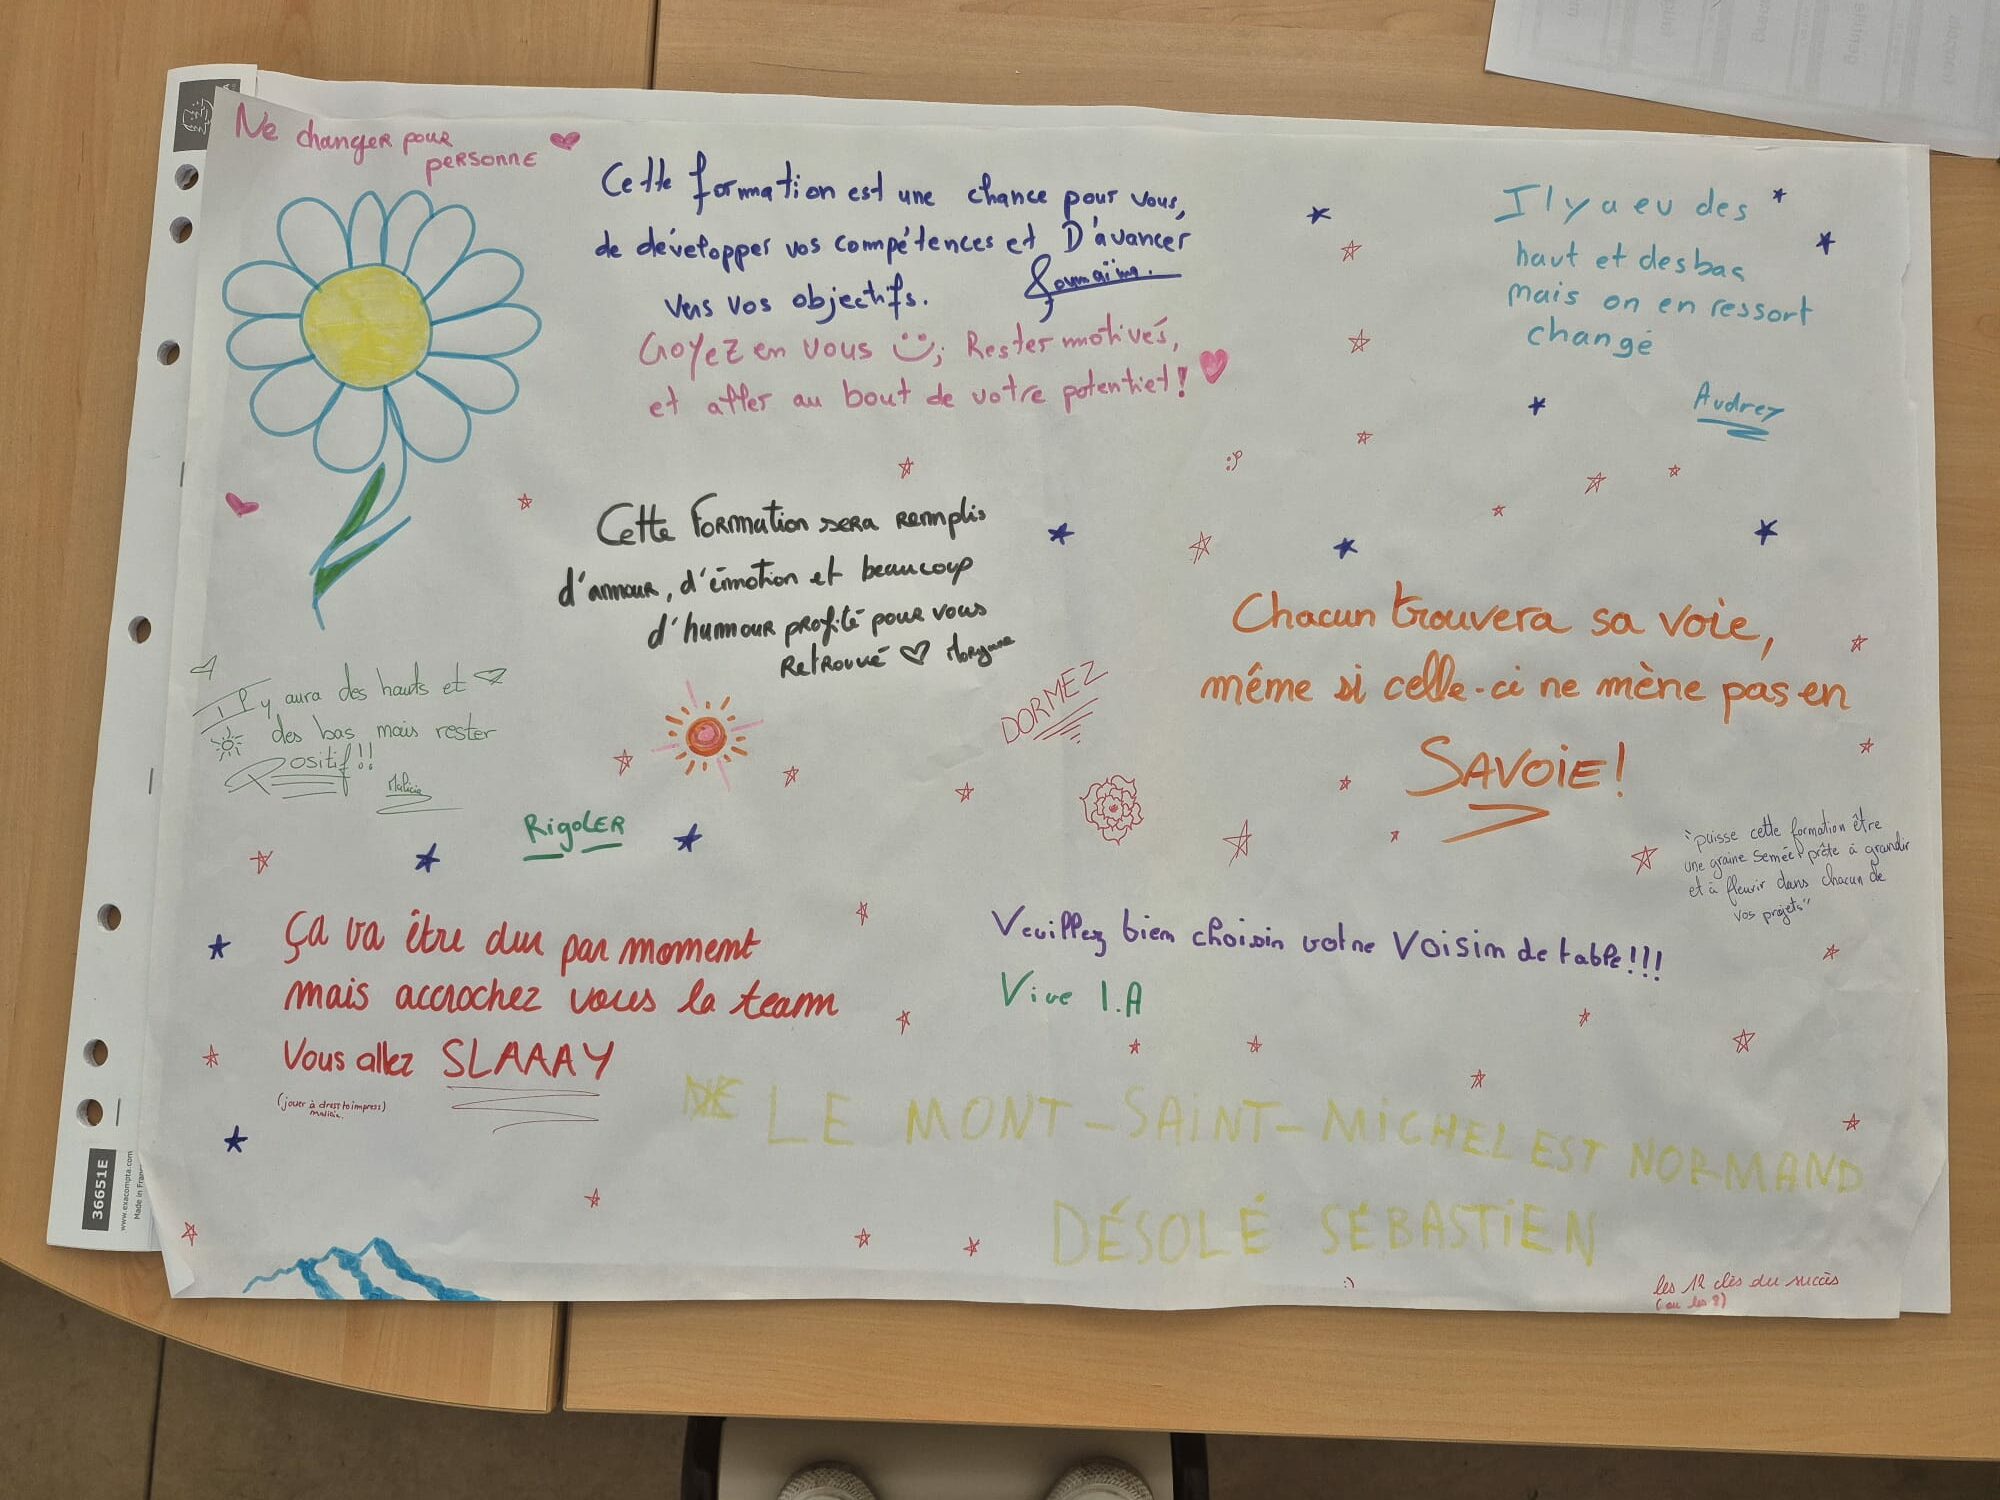 Ne changer pour
personne
Cette formation est une chance pour vous,
de développer vos compétences et D'avancer
vers vos objectifs.
Croyez en vous ; Rester motivés,
et aller au bout de votre potentiel !
Il y a eu des
haut et des bas
mais on en ressort
changé
Audrey
:P
Cette Formation sera remplis
d'amour, d'émotion et beaucoup
d'humour profité pour vous
Retrouvé ♡ Morgane
Il y aura des hauts et
des bas mais rester
Positif!!
Malicia
DORMEZ
Chacun trouvera sa voie,
même si celle-ci ne mène pas en
SAVOIE!
RigoLER
"puisse cette formation être
une graine semée, prête à grandir
et à fleurir dans chacun de
vos projets"
ça va être dur par moment
mais accrochez vous la team
Vous allez SLAAAY
(jouer à dress to impress)
malicia.
Veuillez bien choisir votre Voisin de table!!!
Vive I.A
LE MONT-SAINT-MICHEL EST NORMAND
DÉSOLÉ SÉBASTIEN
:)
les 12 clés du succès
(ou les 8)
36651E
www.exacompta.com